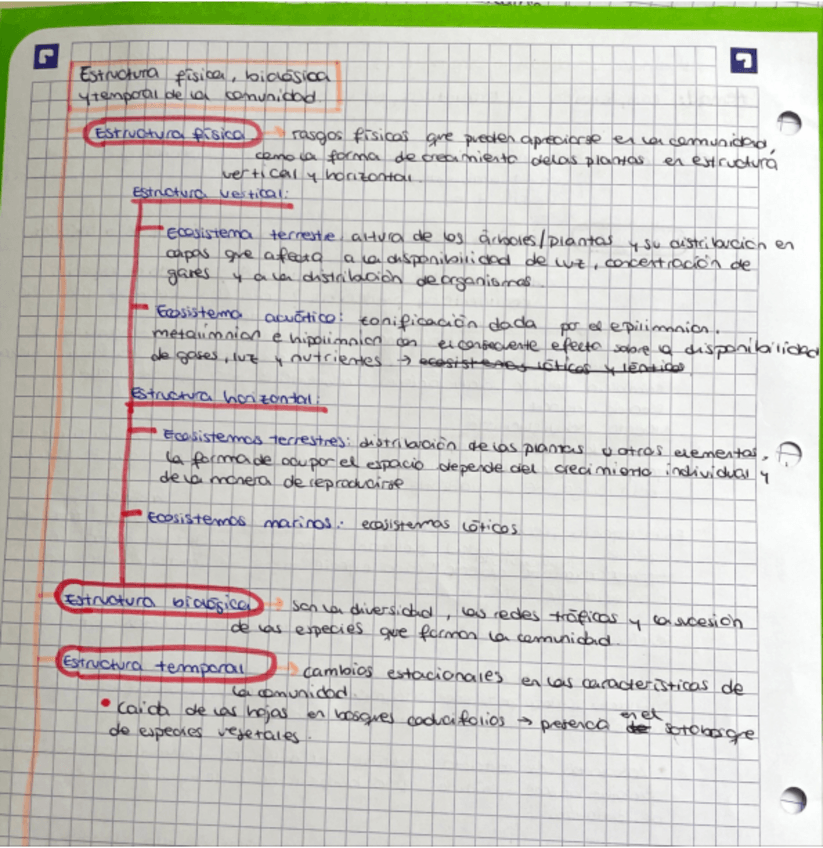 Estructura física, biológica
y temporal de la comunidad
Estructura física → rasgos físicos que pueden apreciarse en la comunidad,
como la forma de crecimiento de las plantas en estructura
vertical y horizontal.
Estructura vertical:
Ecosistema terrestre altura de los árboles/plantas y su distribución en
capas que afecta a la disponibilidad de luz, concentración de
gases y a la distribución de organismos.
Ecosistema acuático: zonificación dada por el epilimnion,
metalimnion e hipolimnion con el consecuente efecto sobre la disponibilidad
de gases, luz y nutrientes → ecosistemas lóticos y lénticos
Estructura horizontal:
Ecosistemas terrestres: distribución de las plantas u otros elementos,
la forma de ocupar el espacio depende del crecimiento individual y
de la manera de reproducirse
Ecosistemas marinos: ecosistemas lóticos
Estructura biológica → son la diversidad, las redes tróficas y la sucesión
de las especies que forman la comunidad.
Estructura temporal → cambios estacionales en las características de
la comunidad.
• Caida de las hojas en bosques caducifolios → presencia de en el sotobosque
de especies vegetales.